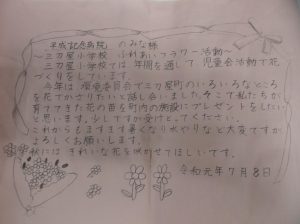 平成記念病院 のみな様
～三刀屋小学校 ふれあいフラワー活動～
三刀屋小学校では年間を通して、児童会活動で花
づくりをしています。
今年は環境委員会で三刀屋町のいろいろなところ
を花でかざりたいと話し合いました。そこで私たちが
育ててきた花の苗を町内の施設にプレゼントをしたい
と思います。少しですが受けとってください。
これからもますます暑くなり水やりなど大変ですが
よろしくお願いします。
秋には きれいな花を咲かせてほしいです。
令和元年7月8日